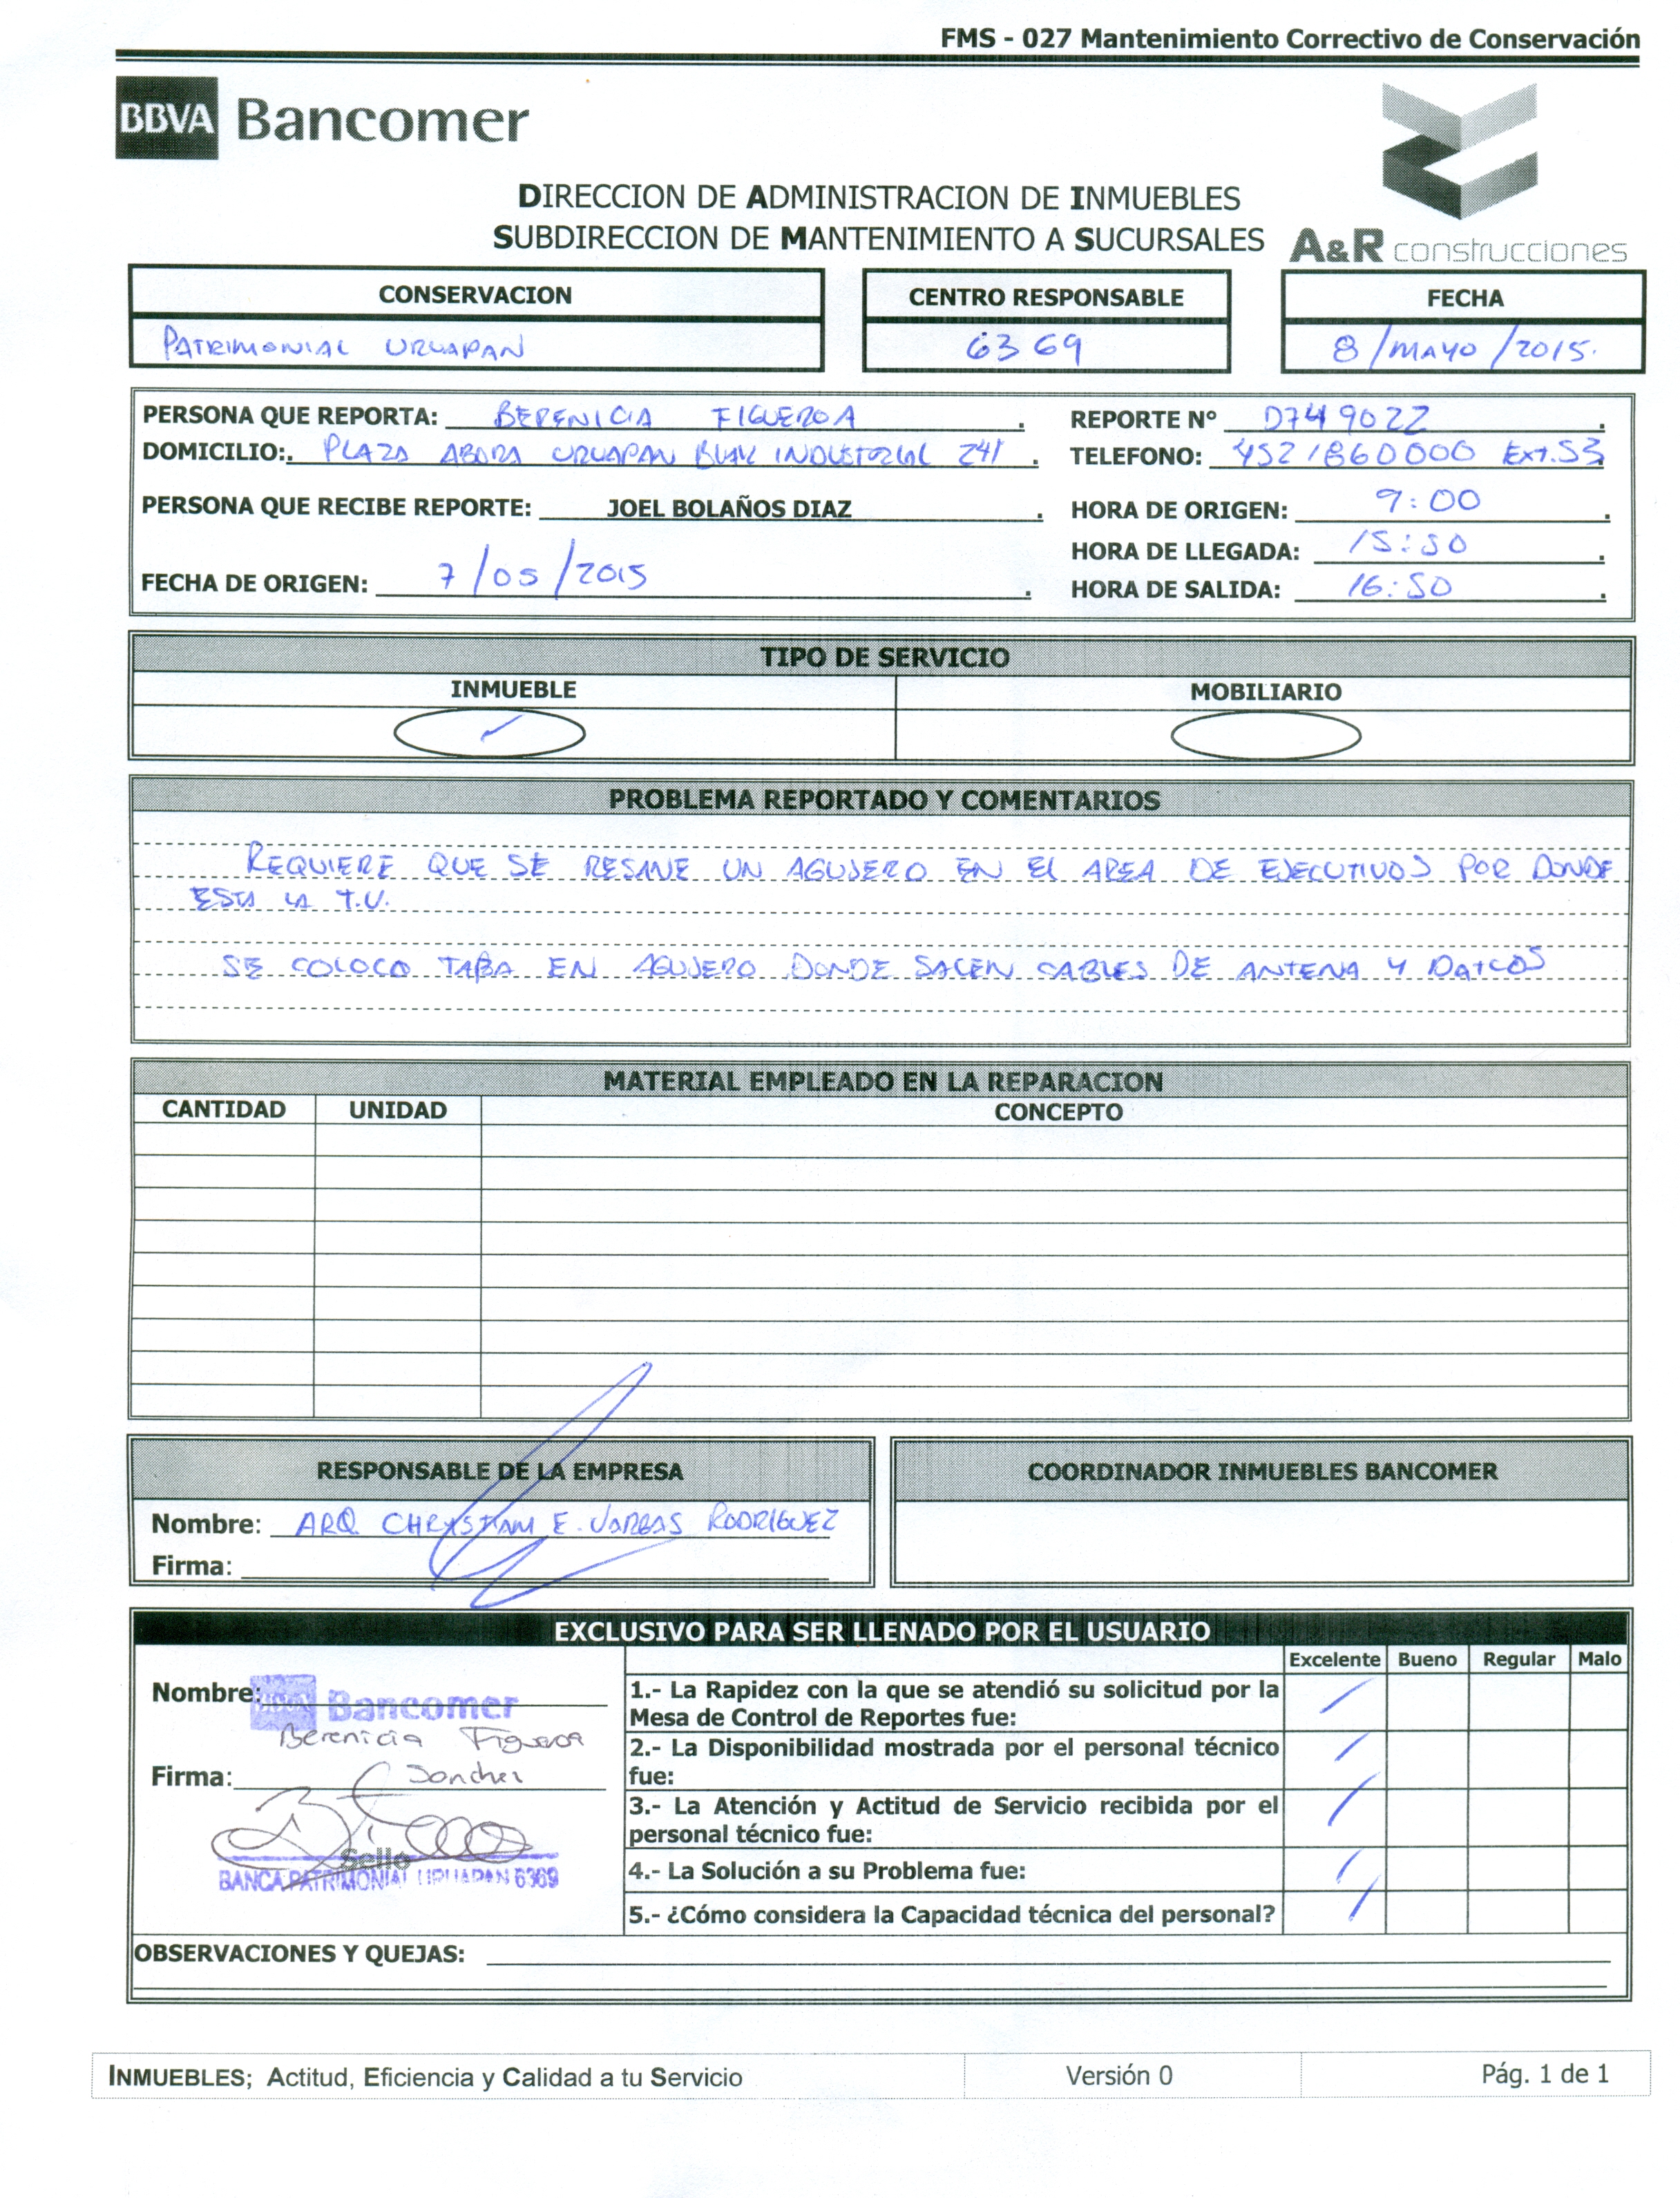 FMS - 027 Mantenimiento Correctivo de Conservación
BBVA Bancomer
DIRECCION DE ADMINISTRACION DE INMUEBLES
SUBDIRECCION DE MANTENIMIENTO A SUCURSALES
A&R construcciones
CONSERVACION CENTRO RESPONSABLE FECHA
PATRIMONIAL URUAPAN 6369 8/MAYO/2015.
PERSONA QUE REPORTA: BERENICIA FIGUEROA. REPORTE N° D749022.
DOMICILIO:. PLAZA AGORA URUAPAN INDUSTRIAL 241. TELEFONO: 4521860000 Ext.53.
PERSONA QUE RECIBE REPORTE: JOEL BOLAÑOS DIAZ. HORA DE ORIGEN: 9:00.
HORA DE LLEGADA: 15:50.
FECHA DE ORIGEN: 7/05/2015. HORA DE SALIDA: 16:50.
TIPO DE SERVICIO
INMUEBLE MOBILIARIO
PROBLEMA REPORTADO Y COMENTARIOS
REQUIERE QUE SE RESANE UN AGUJERO EN EL AREA DE EJECUTIVOS POR DONDE
ESTA LA T.V.
SE COLOCO TAPA EN AGUJERO DONDE SALEN CABLES DE ANTENA Y
MATERIAL EMPLEADO EN LA REPARACION
CANTIDAD UNIDAD CONCEPTO
RESPONSABLE DE LA EMPRESA COORDINADOR INMUEBLES BANCOMER
Nombre: ARQ. CHRYSTIAM E. VARGAS RODRÍGUEZ
Firma:
EXCLUSIVO PARA SER LLENADO POR EL USUARIO
Excelente Bueno Regular Malo
Nombre: BBVA Bancomer
Berenicia Figueroa
Firma: Sanchez
Sello
BANCA PATRIMONIAL URUAPAN 6369
1.- La Rapidez con la que se atendió su solicitud por la
Mesa de Control de Reportes fue:
2.- La Disponibilidad mostrada por el personal técnico
fue:
3.- La Atención y Actitud de Servicio recibida por el
personal técnico fue:
4.- La Solución a su Problema fue:
5.- ¿Cómo considera la Capacidad técnica del personal?
OBSERVACIONES Y QUEJAS:
INMUEBLES; Actitud, Eficiencia y Calidad a tu Servicio Versión 0 Pág. 1 de 1